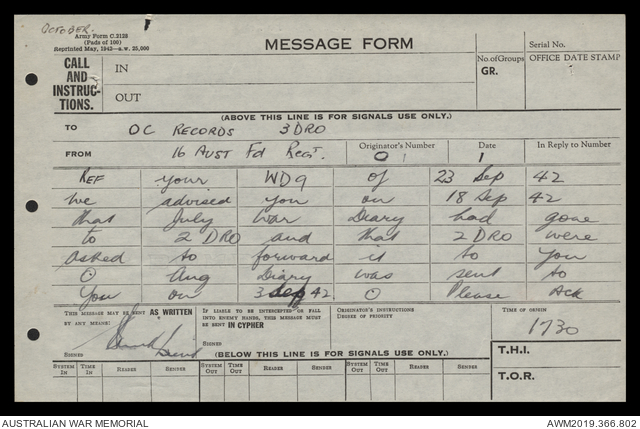 OCTOBER.
Army Form C.2128
(Pads of 100)
Reprinted May, 1942—a.w. 25,000
MESSAGE FORM
Serial No.
CALL AND INSTRUCTIONS.
IN
OUT
No. of Groups
GR.
OFFICE DATE STAMP
(ABOVE THIS LINE IS FOR SIGNALS USE ONLY.)
TO OC RECORDS 3 DRO
FROM 16 AUST Fd Regt.
Originator's Number
O 1
Date
1
In Reply to Number
REF your WD9 of 23 Sep 42
We advised you on 18 Sep 42
that July War Diary had gone
to 2 DRO and that 2 DRO were
asked to forward it to You
O Aug Diary was sent to
You on 3 Sep 42 O Please Ack
THIS MESSAGE MAY BE SENT AS WRITTEN BY ANY MEANS.
SIGNED
IF LIABLE TO BE INTERCEPTED OR FALL INTO ENEMY HANDS, THIS MESSAGE MUST BE SENT IN CIPHER
SIGNED
ORIGINATOR'S INSTRUCTIONS
DEGREE OF PRIORITY
TIME OF ORIGIN
1730
T.H.I.
T.O.R.
(BELOW THIS LINE IS FOR SIGNALS USE ONLY.)
SYSTEM IN TIME IN READER SENDER SYSTEM OUT TIME OUT READER SENDER SYSTEM OUT TIME OUT READER SENDER
AUSTRALIAN WAR MEMORIAL
AWM2019.366.802